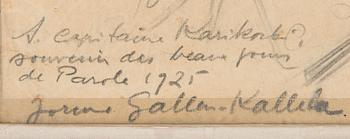 A. Capitaine Karikoski,
souvenir des beaux jours
de Parole 1925
Jorma Gallen-Kallela.